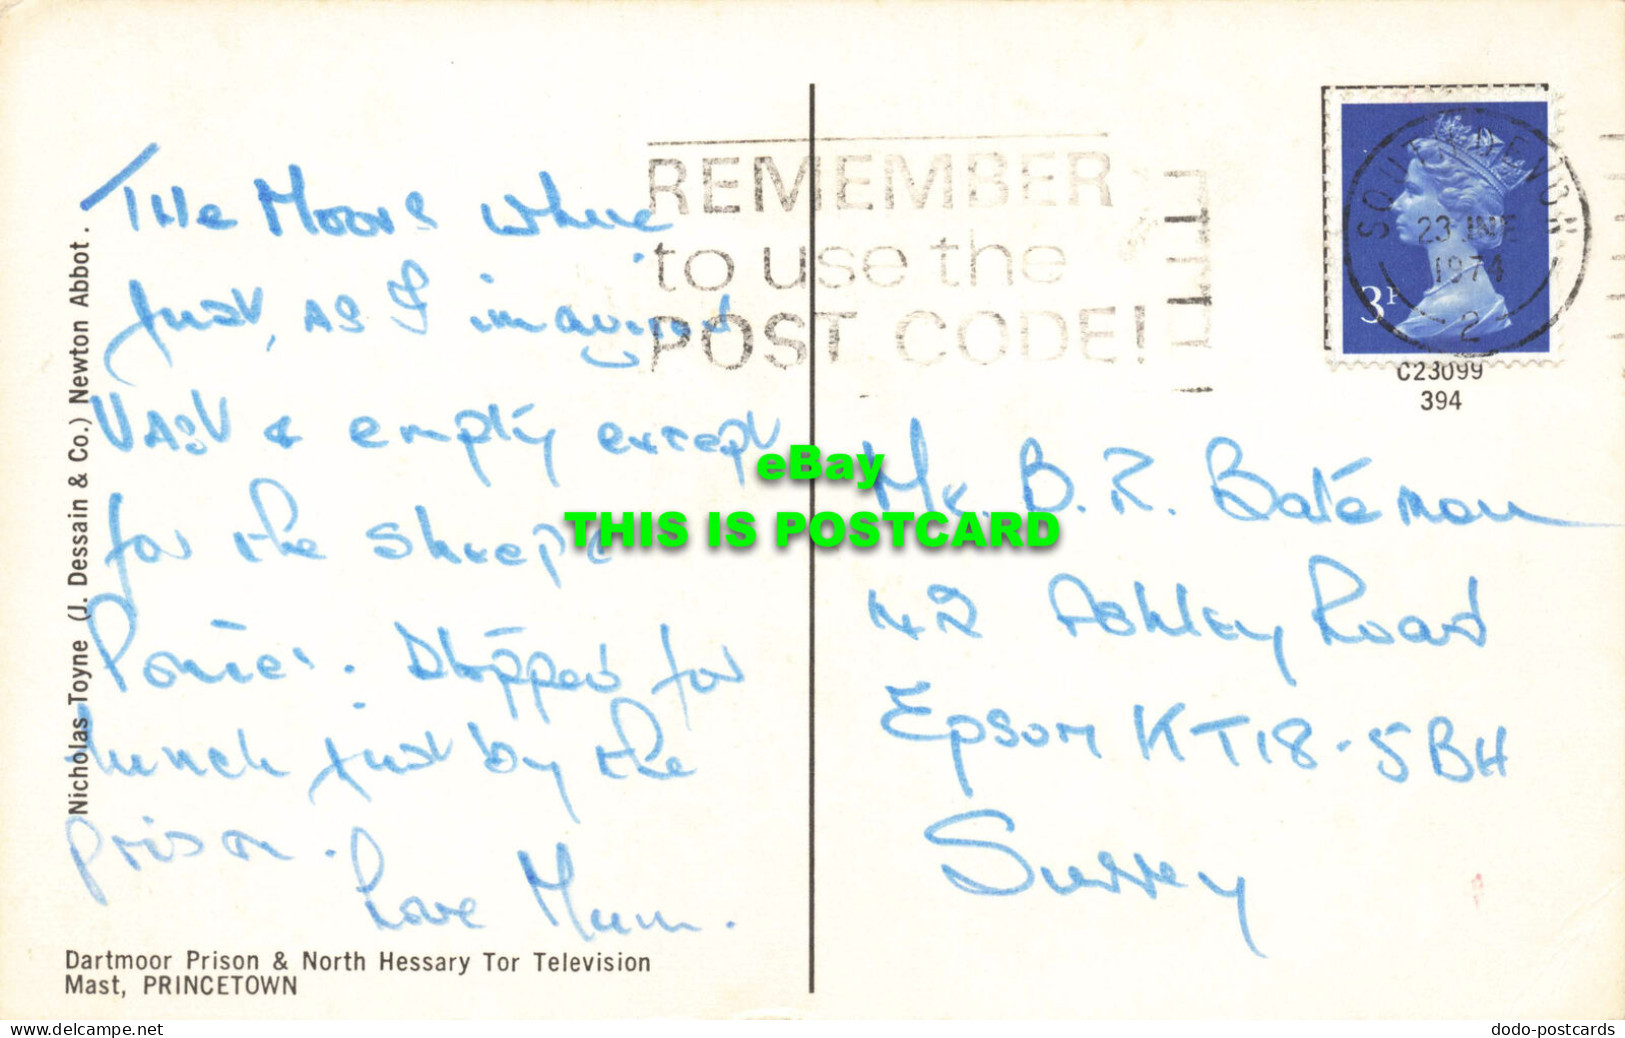 The Moors where
just, as I imagined
VAST & empty except
for the sheep &
Ponies. Stopped for
lunch just by the
prison.
Love Mum.
Dartmoor Prison & North Hessary Tor Television
Mast, PRINCETOWN
Nicholas Toyne (J. Dessain & Co.) Newton Abbot.
REMEMBER
to use the
POST CODE!
3P
23 JNE
1974
2
C23099
394
eBay
THIS IS POSTCARD
Mr. B. R. Bateman
42 Ashley Road
Epsom KT18-5BH
Surrey
www.delcampe.net
dodo-postcards